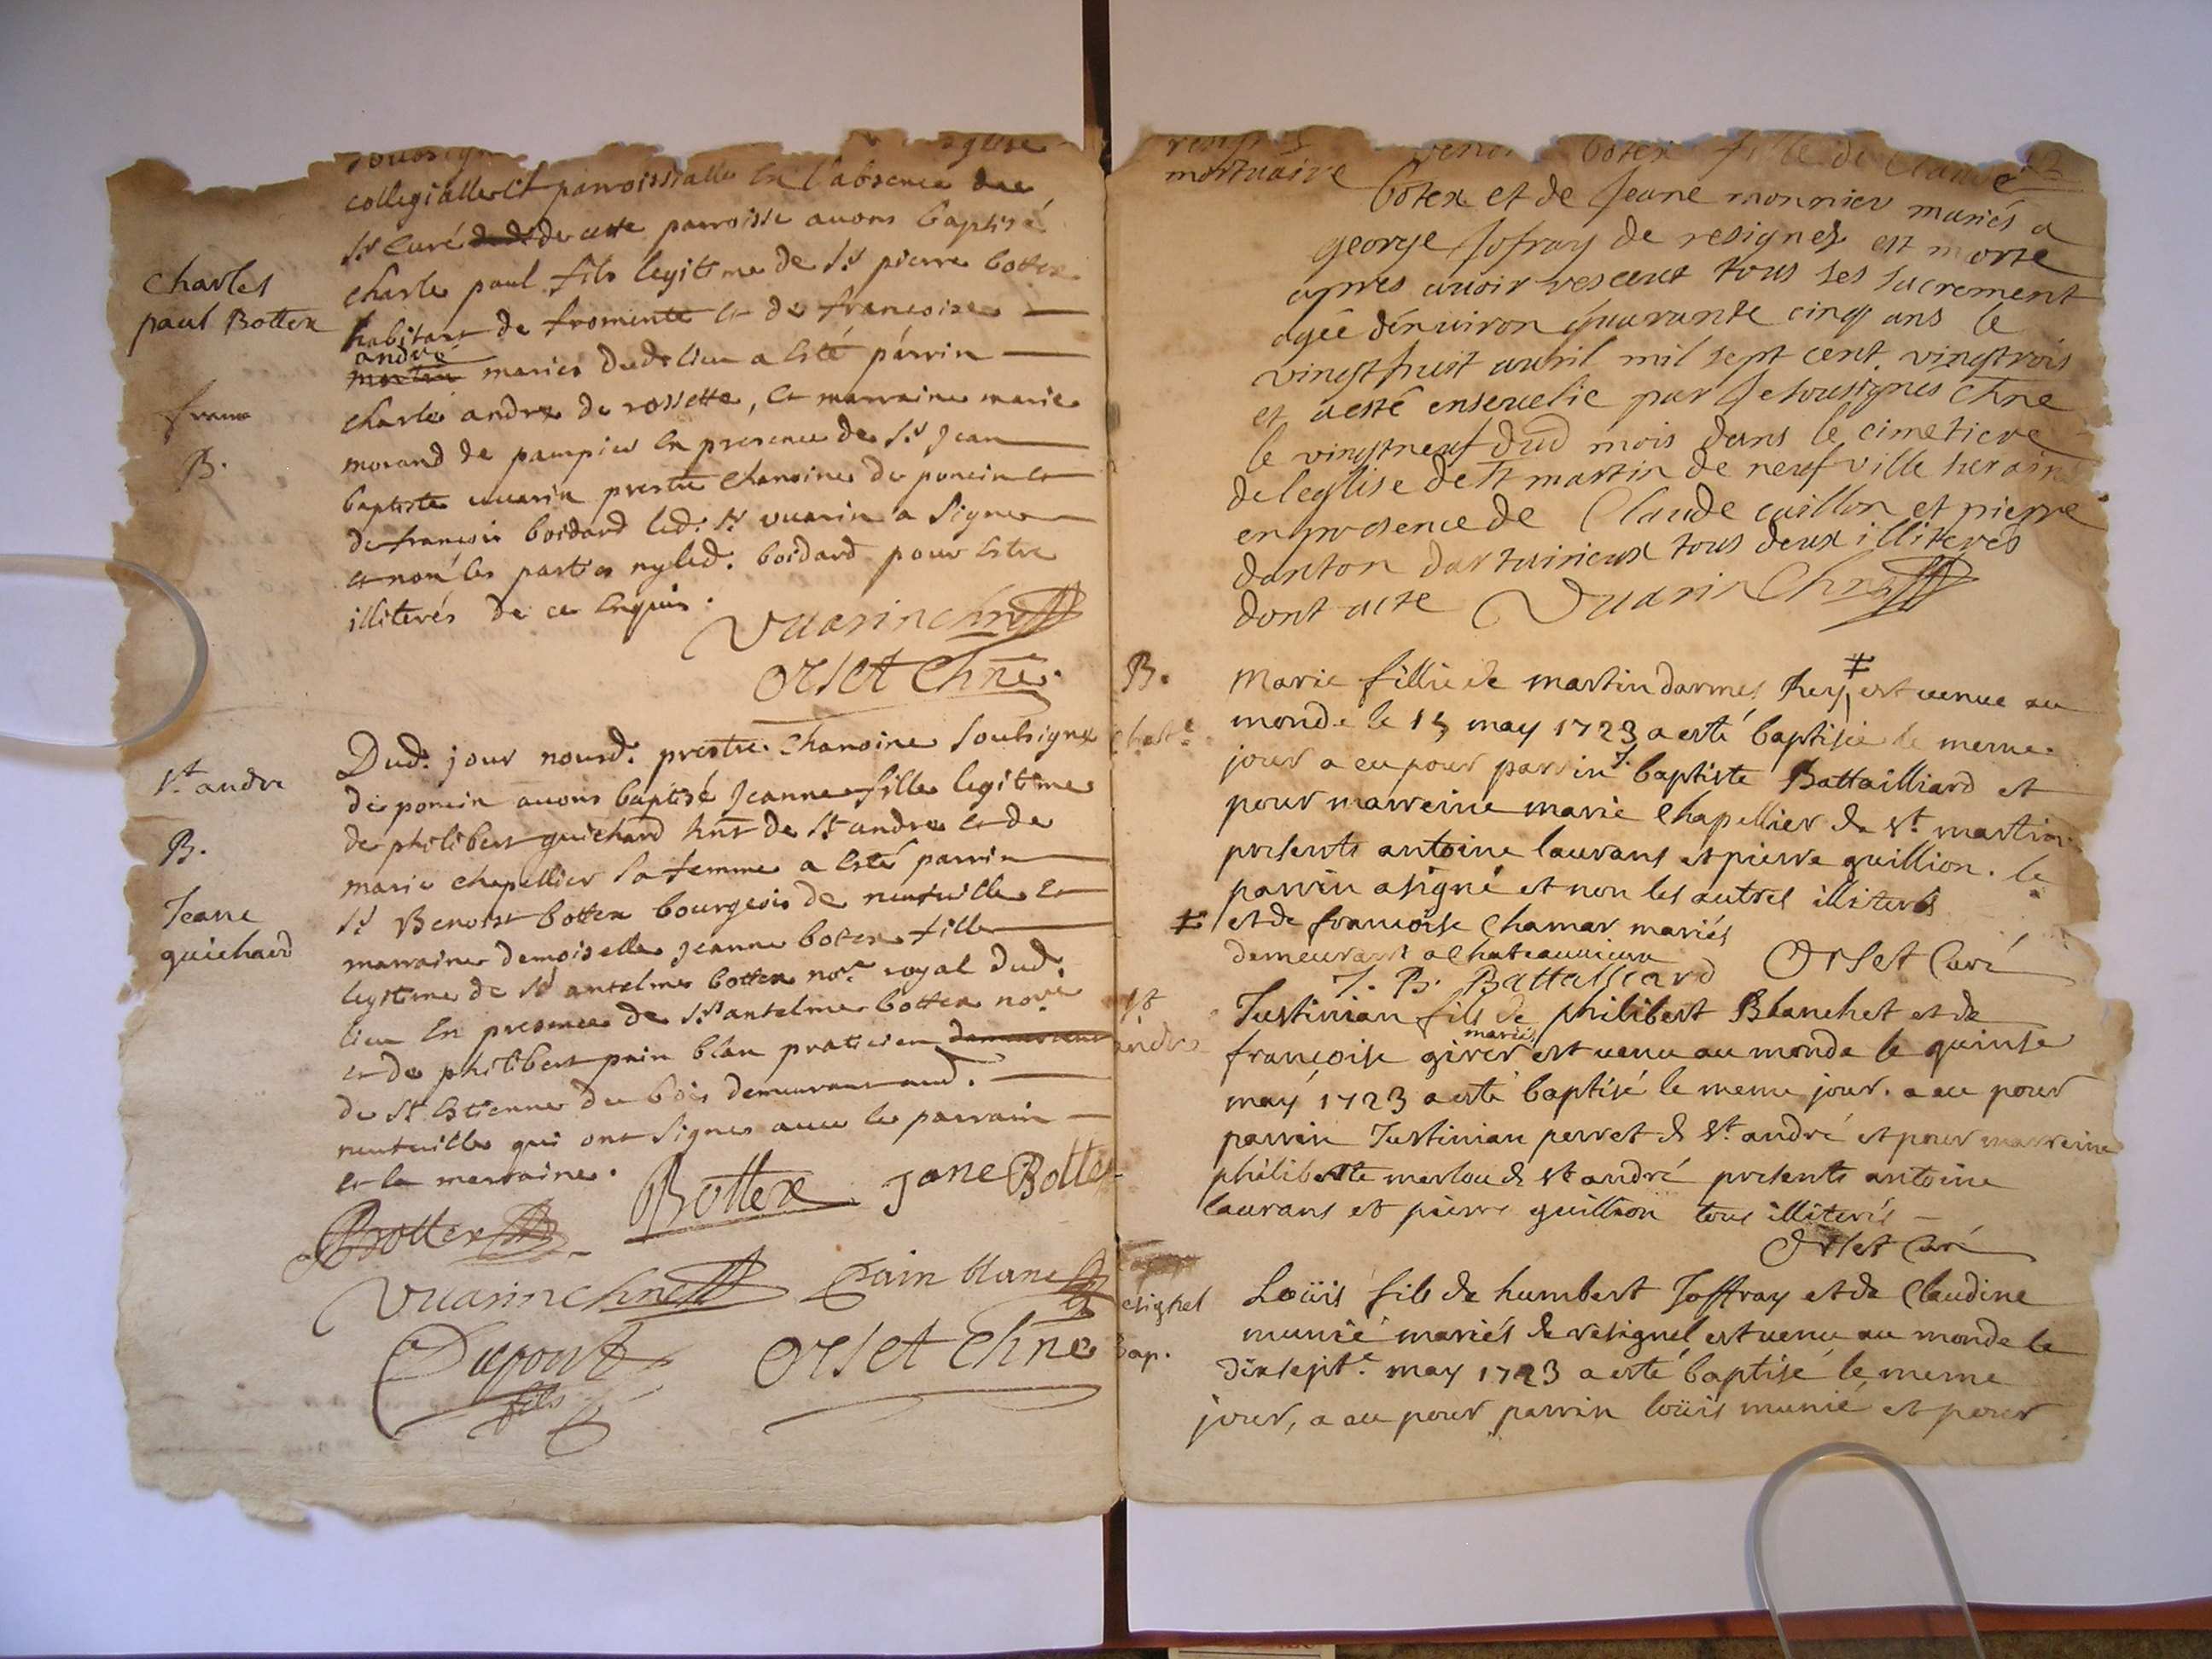 collegialle et parroissialle en l'absence due
Sr Curé de cette parroisse avons baptisé
charle paul fils legitime de Sr pierre bottex
habitant de fromente et de françoise
andré
mariés dud. lieu a esté parrin
charle andre de rossette, et marraine marie
morand de pampier en presence de Sr Jean
baptiste vuarin prestre chanoine de poncin et
de françois boidard led. Sr vuarin a signe
et non les parties ny led. boidard pour estre
illiterés de ce enquis.
Vuarin chne
Orset Chne.
Charles
paul Bottex
B.
Dud. jour nousd. prestre chanoine soubsigne
de poncin avons baptisé Jeanne fille legitime
de philibert guichard hnt de St andre et de
marie chapellier sa femme a esté parrin
Sr Benoist bottex bourgeois de neufville et
marraine demoiselle Jeanne botex fille
legitime de Sr antelme bottex nore royal dud.
lieu en presence de Sr antelme bottex nore
et de philibert pain blan praticien
de St Estienne du bois demeurant aud.
neufville qui ont signes avec le parrain
et la marraine.
St andre
B.
Jeane
guichard
Bottex Bottex Jane Bottex
Vuarin chne Pain blanc
Dupont
fils
Orset Chne
mortuaire
botex fille de Claude
botex et de Jeane monnier mariés a
george Jofray de resignel est morte
apres avoir resceut tous ses sacrement
agée d'enuiron quarante cinq ans le
vingt huit auril mil sept cent vingtrois
et a esté enseuelie par Je sousignes Chne
le vingtneuf dud mois dans le cimetiere
de leglise de St martin de neufville
en presence de Claude caillon et pierre
danton dartuirieux tous deux illiteres
dont acte Vuarin Chne
B.
Marie fillie de martin darmes Rey, ‡ est venue au
monde le 15 may 1723 a esté baptisée le meme
jour a eu pour parrin J. baptiste Battailliard et
pour marreine marie Chapellier de St martin
presents antoine laurans et pierre guillion. le
parrin a signé et non les autres illiterés
‡ et de françoise Chamar mariés
demeurant a Chateauvieux
J. B. Battalliard Orset Curé
St
andre
Justinian fils de philibert Blanchet et de
mariés
françoise girer est venu au monde le quinse
may 1723 a esté baptisé le meme jour. a eu pour
parrin Justinian perret de St andré et pour marreine
philiberte merlou de St andré presents antoine
laurans et pierre guillion tous illiterés
Orset Curé
esignel
Bap.
Loüis fils de humbert Joffray et de Claudine
munié mariés de resignel est venu au monde le
dixsept.e may 1723 a esté baptisé le meme
jour, a eu pour parrin loüis munié et pour